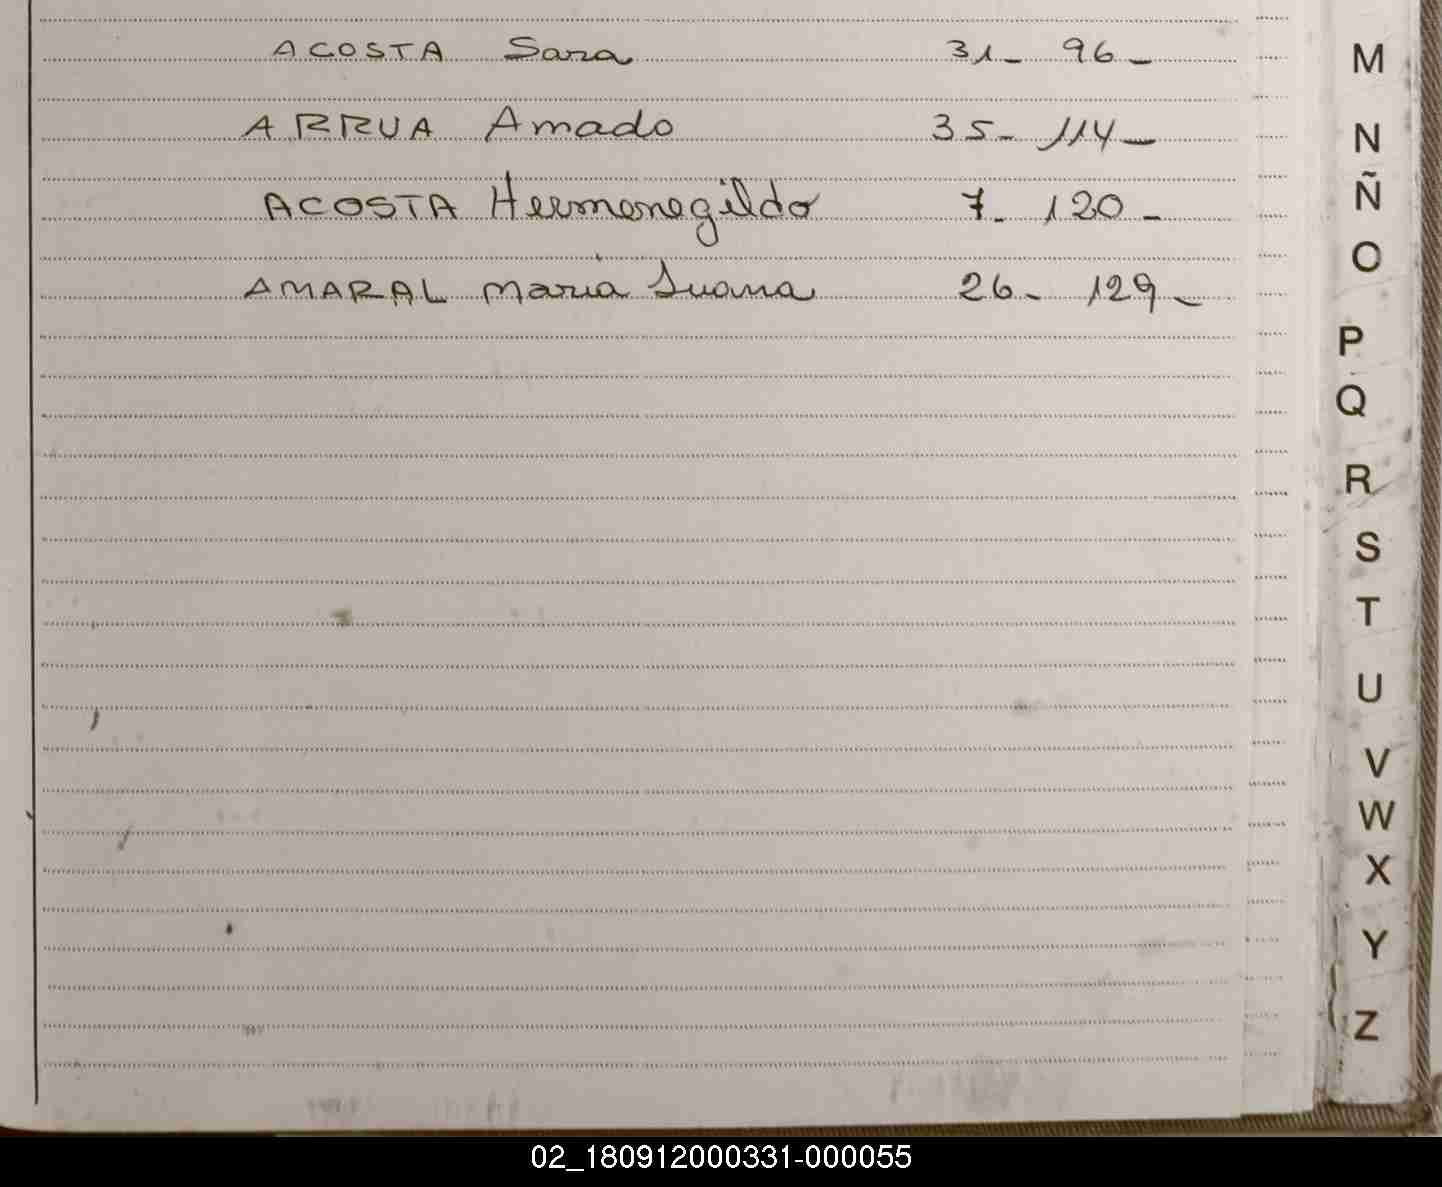 ACOSTA Sara 31- 96-
ARRUA Amado 35- 114-
ACOSTA Hermenegildo 7- 120-
AMARAL María Juana 26- 129-
M
N
Ñ
O
P
Q
R
S
T
U
V
W
X
Y
Z
02_180912000331-000055